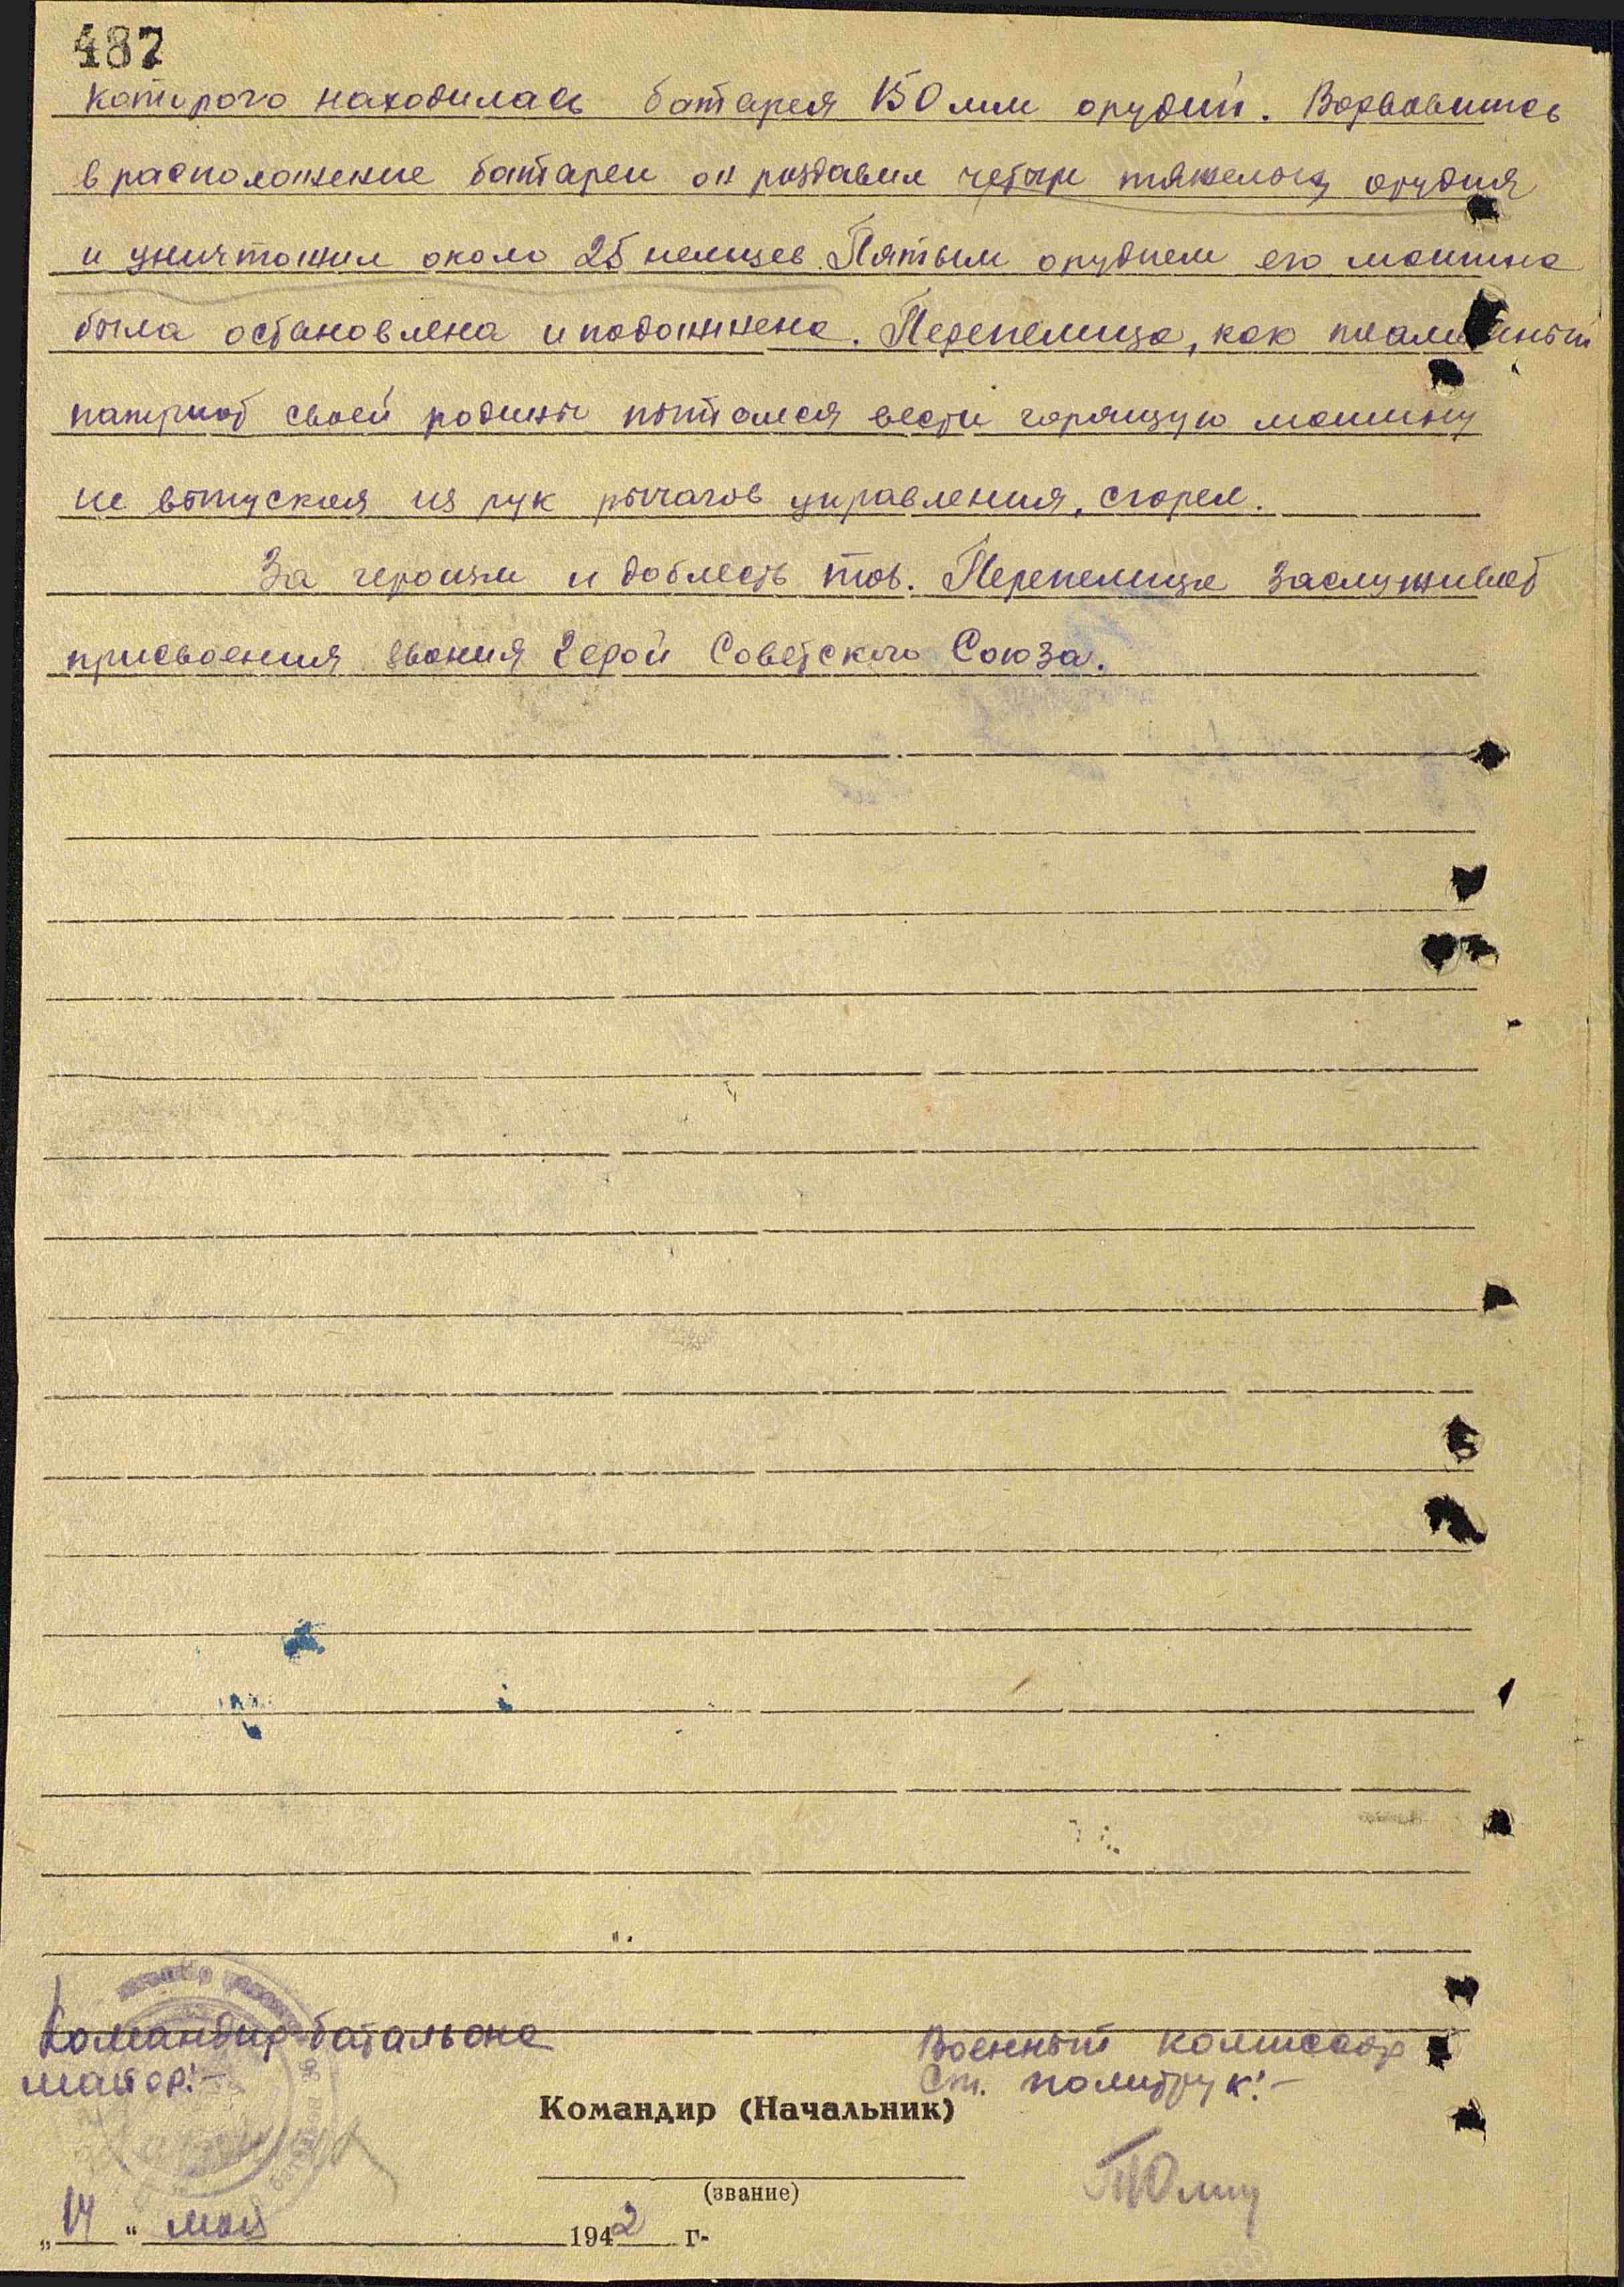 487
которого находилась батарея 150 мм орудий. Ворвавшись
в расположение батареи он раздавил четыре тяжелых орудия
и уничтожил около 25 немцев. Пятым орудием его машина
была остановлена и подожжена. Перепелица, как пламенный
патриот своей родины пытался вести горящую машину
не выпуская из рук рычагов управления, сгорел.
За героизм и доблесть тов. Перепелица заслуживает
присвоения звания Герой Советского Союза.
Командир батальона
майор:-
Военный комиссар
Ст. политрук:-
Командир (Начальник)
(звание)
„14“ мая 1942 г.